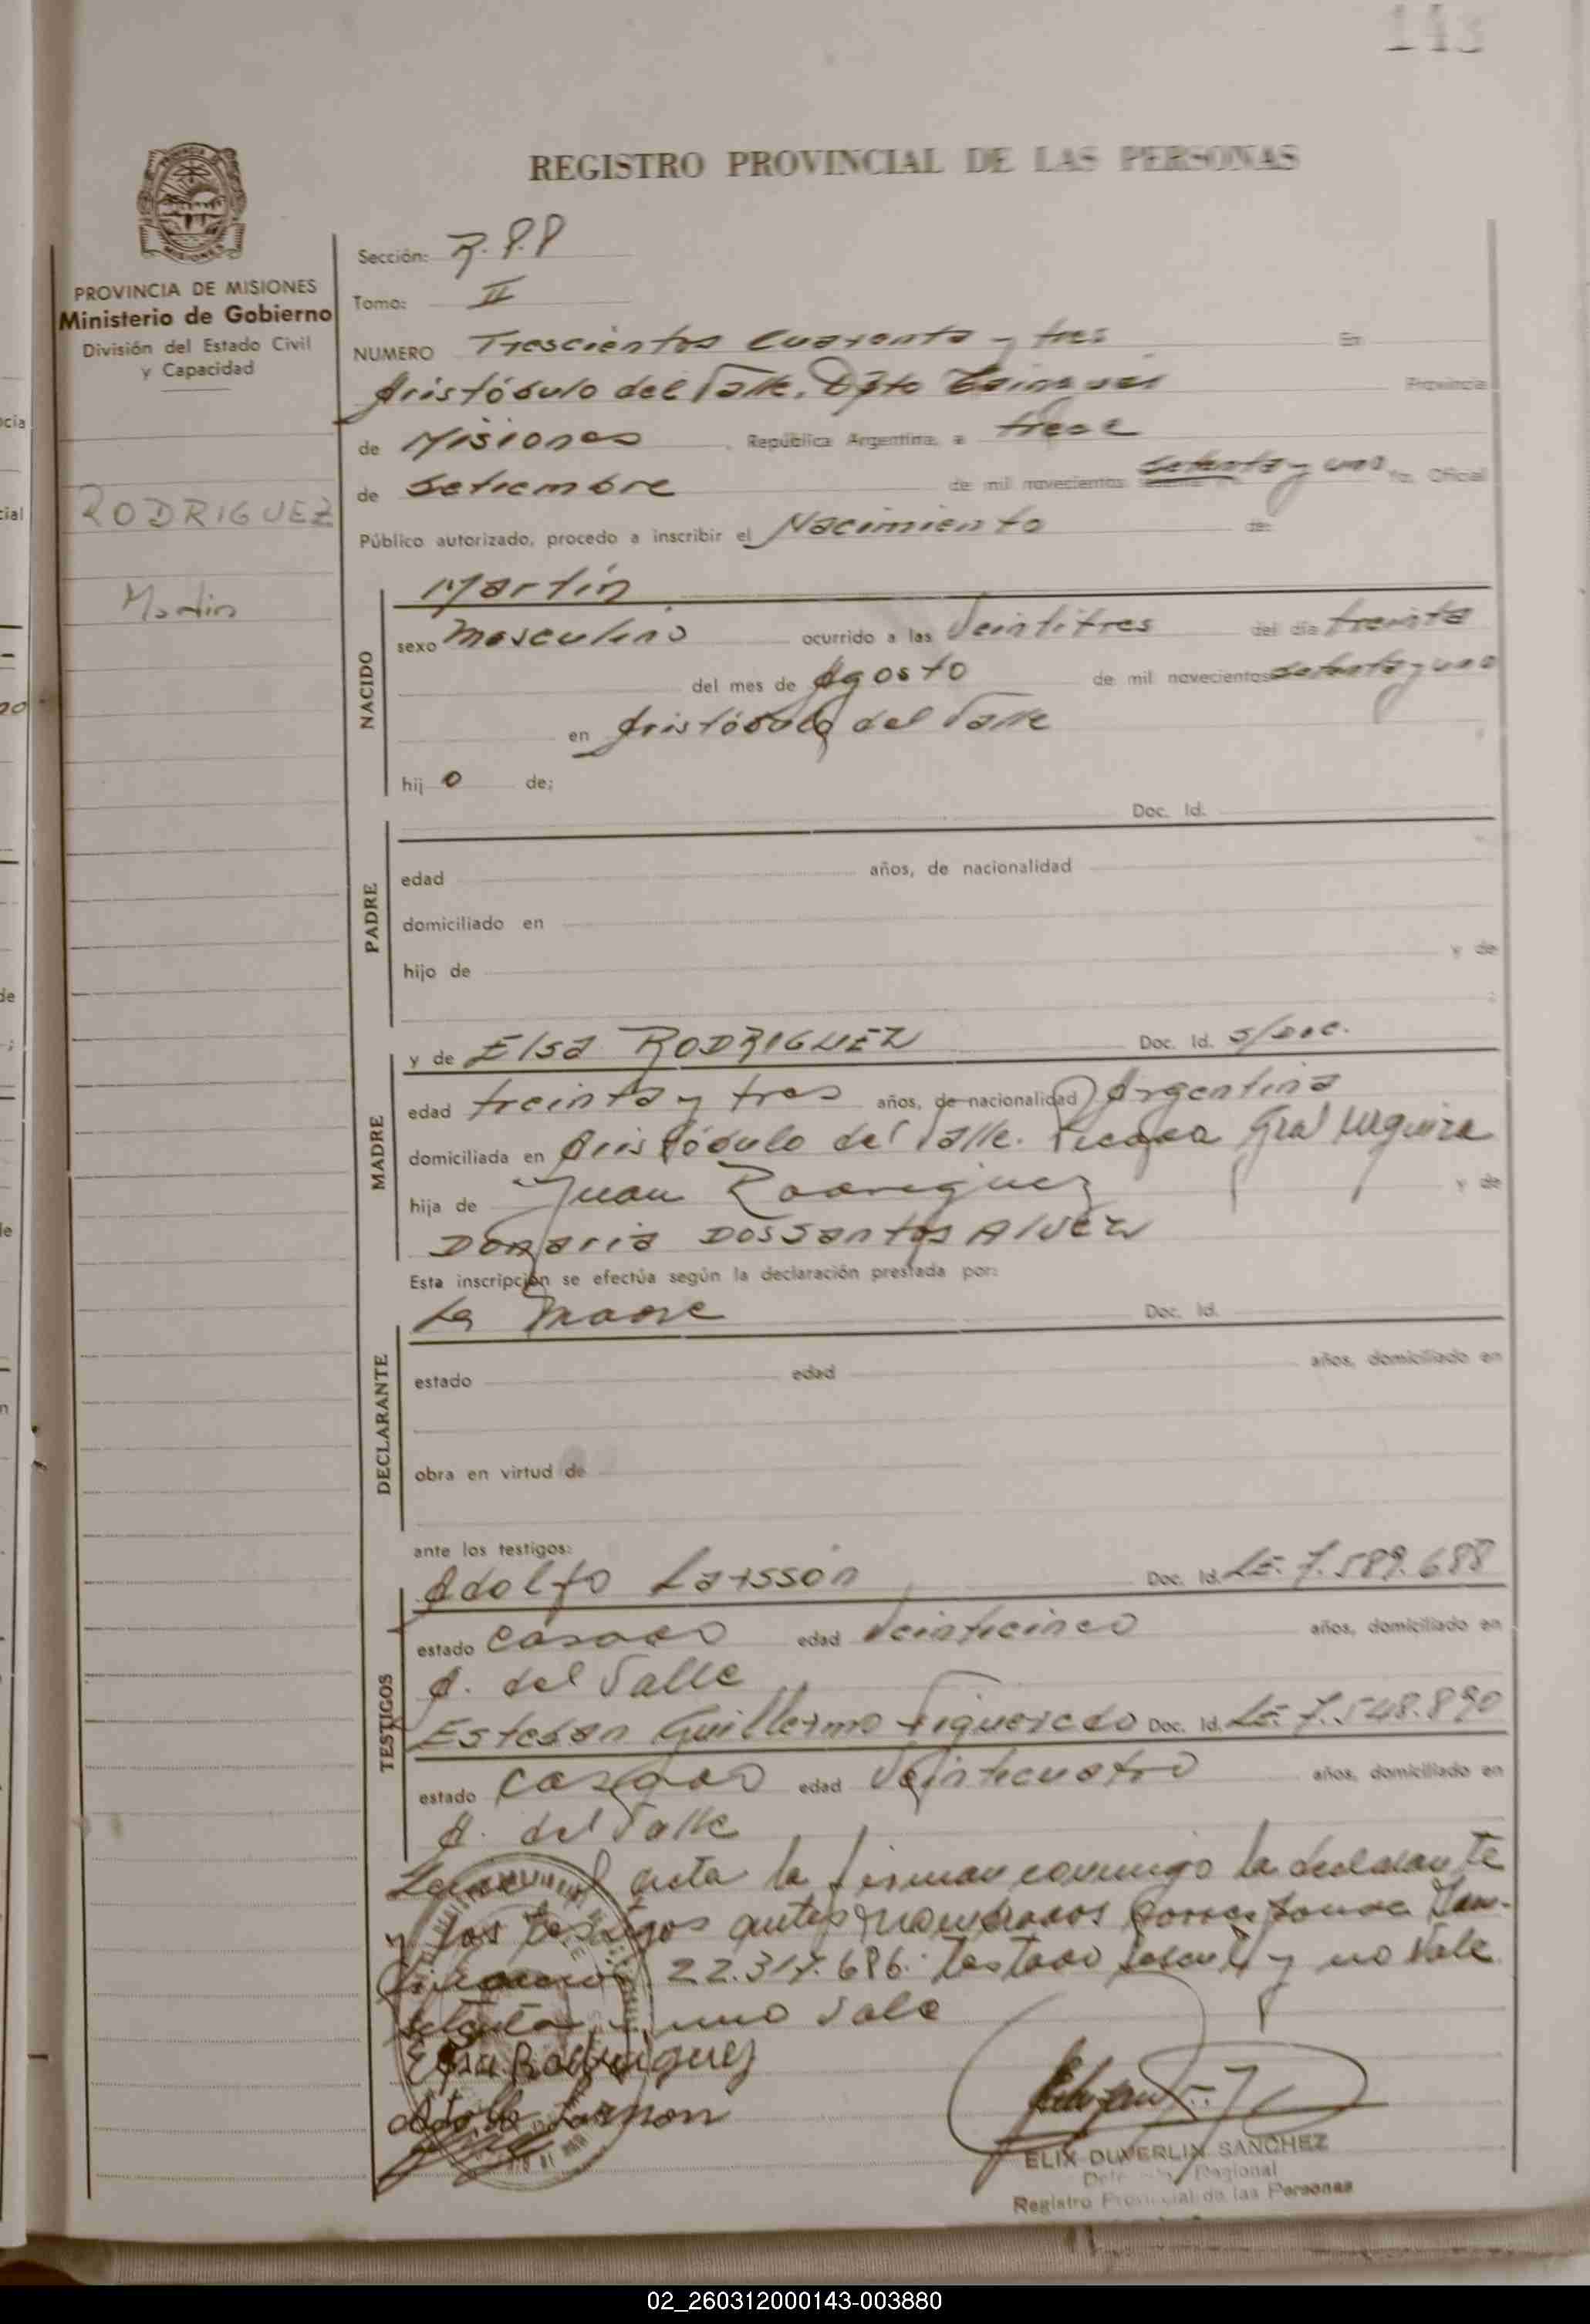 143
REGISTRO PROVINCIAL DE LAS PERSONAS
PROVINCIA DE MISIONES
Ministerio de Gobierno
División del Estado Civil
y Capacidad
RODRIGUEZ
Martin
Sección: R.P.P
Tomo: II
NUMERO Trescientos Cuarenta y tres En
Aristóbulo del Valle, Dpto Cainguas Provincia
de Misiones, República Argentina, a trece
de Setiembre de mil novecientos setenta y uno Yo, Oficial
Público autorizado, procedo a inscribir el Nacimiento de:
NACIDO
Martín
sexo masculino ocurrido a las Veintitres del día treinta
del mes de Agosto de mil novecientos setenta y uno
en Aristóbulo del Valle
hijo de;
PADRE
Doc. Id.
edad años, de nacionalidad
domiciliado en
hijo de y de
;
MADRE
y de Elsa RODRIGUEZ Doc. Id. S/Doc.
edad treinta y tres años, de nacionalidad Argentina
domiciliada en Aristóbulo del Valle. Picada Gral Urquiza
hija de Juan Rodriguez y de
Dossantos Alvez
Esta inscripción se efectúa según la declaración prestada por:
DECLARANTE
La madre Doc. Id.
estado edad años, domiciliado en
obra en virtud de
ante los testigos:
TESTIGOS
Adolfo Larsson Doc. Id. LE. 7.589.688
estado casado edad Veinticinco años, domiciliado en
A. del Valle
Esteban Guillermo Figueredo Doc. Id. LE. 7.548.890
estado casado edad Veinticuatro años, domiciliado en
A. del Valle
acta la firman conmigo la declarante
y los testigos antes nombrados
22.317.686. Testado y no Vale
setenta y uno Vale
Elsa Rodriguez
Adolfo Larsson
ELIX DUVERLIN SANCHEZ
Regional
Registro Provincial de las Personas
02_260312000143-003880